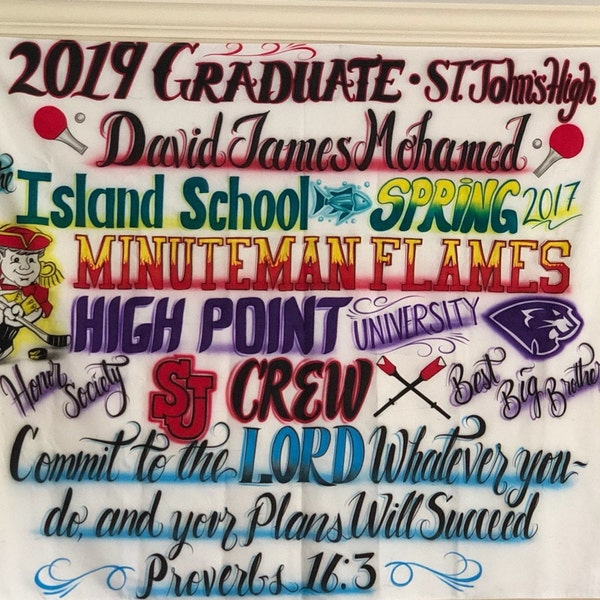 2019 GRADUATE • ST. John's High
David James Mohamed
The Island School SPRING 2017
MINUTEMAN FLAMES
HIGH POINT UNIVERSITY
Honor Society SJ CREW Best Big Brother
Commit to the LORD Whatever you
do, and your Plans Will Succeed
Proverbs 16:3